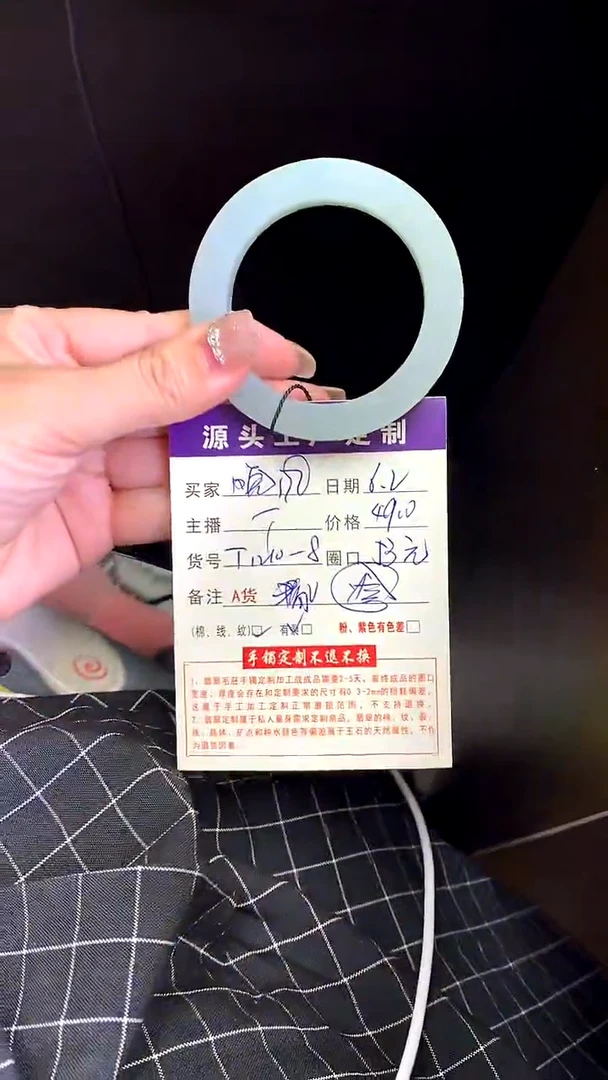 源头工厂定制
买家 顺风 日期 6.2
主播 价格 4900
货号 T1210-8 圈口
备注 A货
(棉、线、纹)☑ 有裂☐ 粉、紫色有色差☐
手镯定制不退不换
1、翡翠毛胚手镯定制加工成成品需要2-5天，最终成品的圈口
宽度，厚度会存在和定制要求的尺寸有0.3-2mm的粗糙偏差，
这属于手工加工定制正常磨损范围，不支持退换。
2、翡翠定制属于私人量身需求定制商品，翡翠的棉、纹、裂、
线、晶体、矿点和种水颜色有偏差属于玉石的天然属性，不作
为退货因素